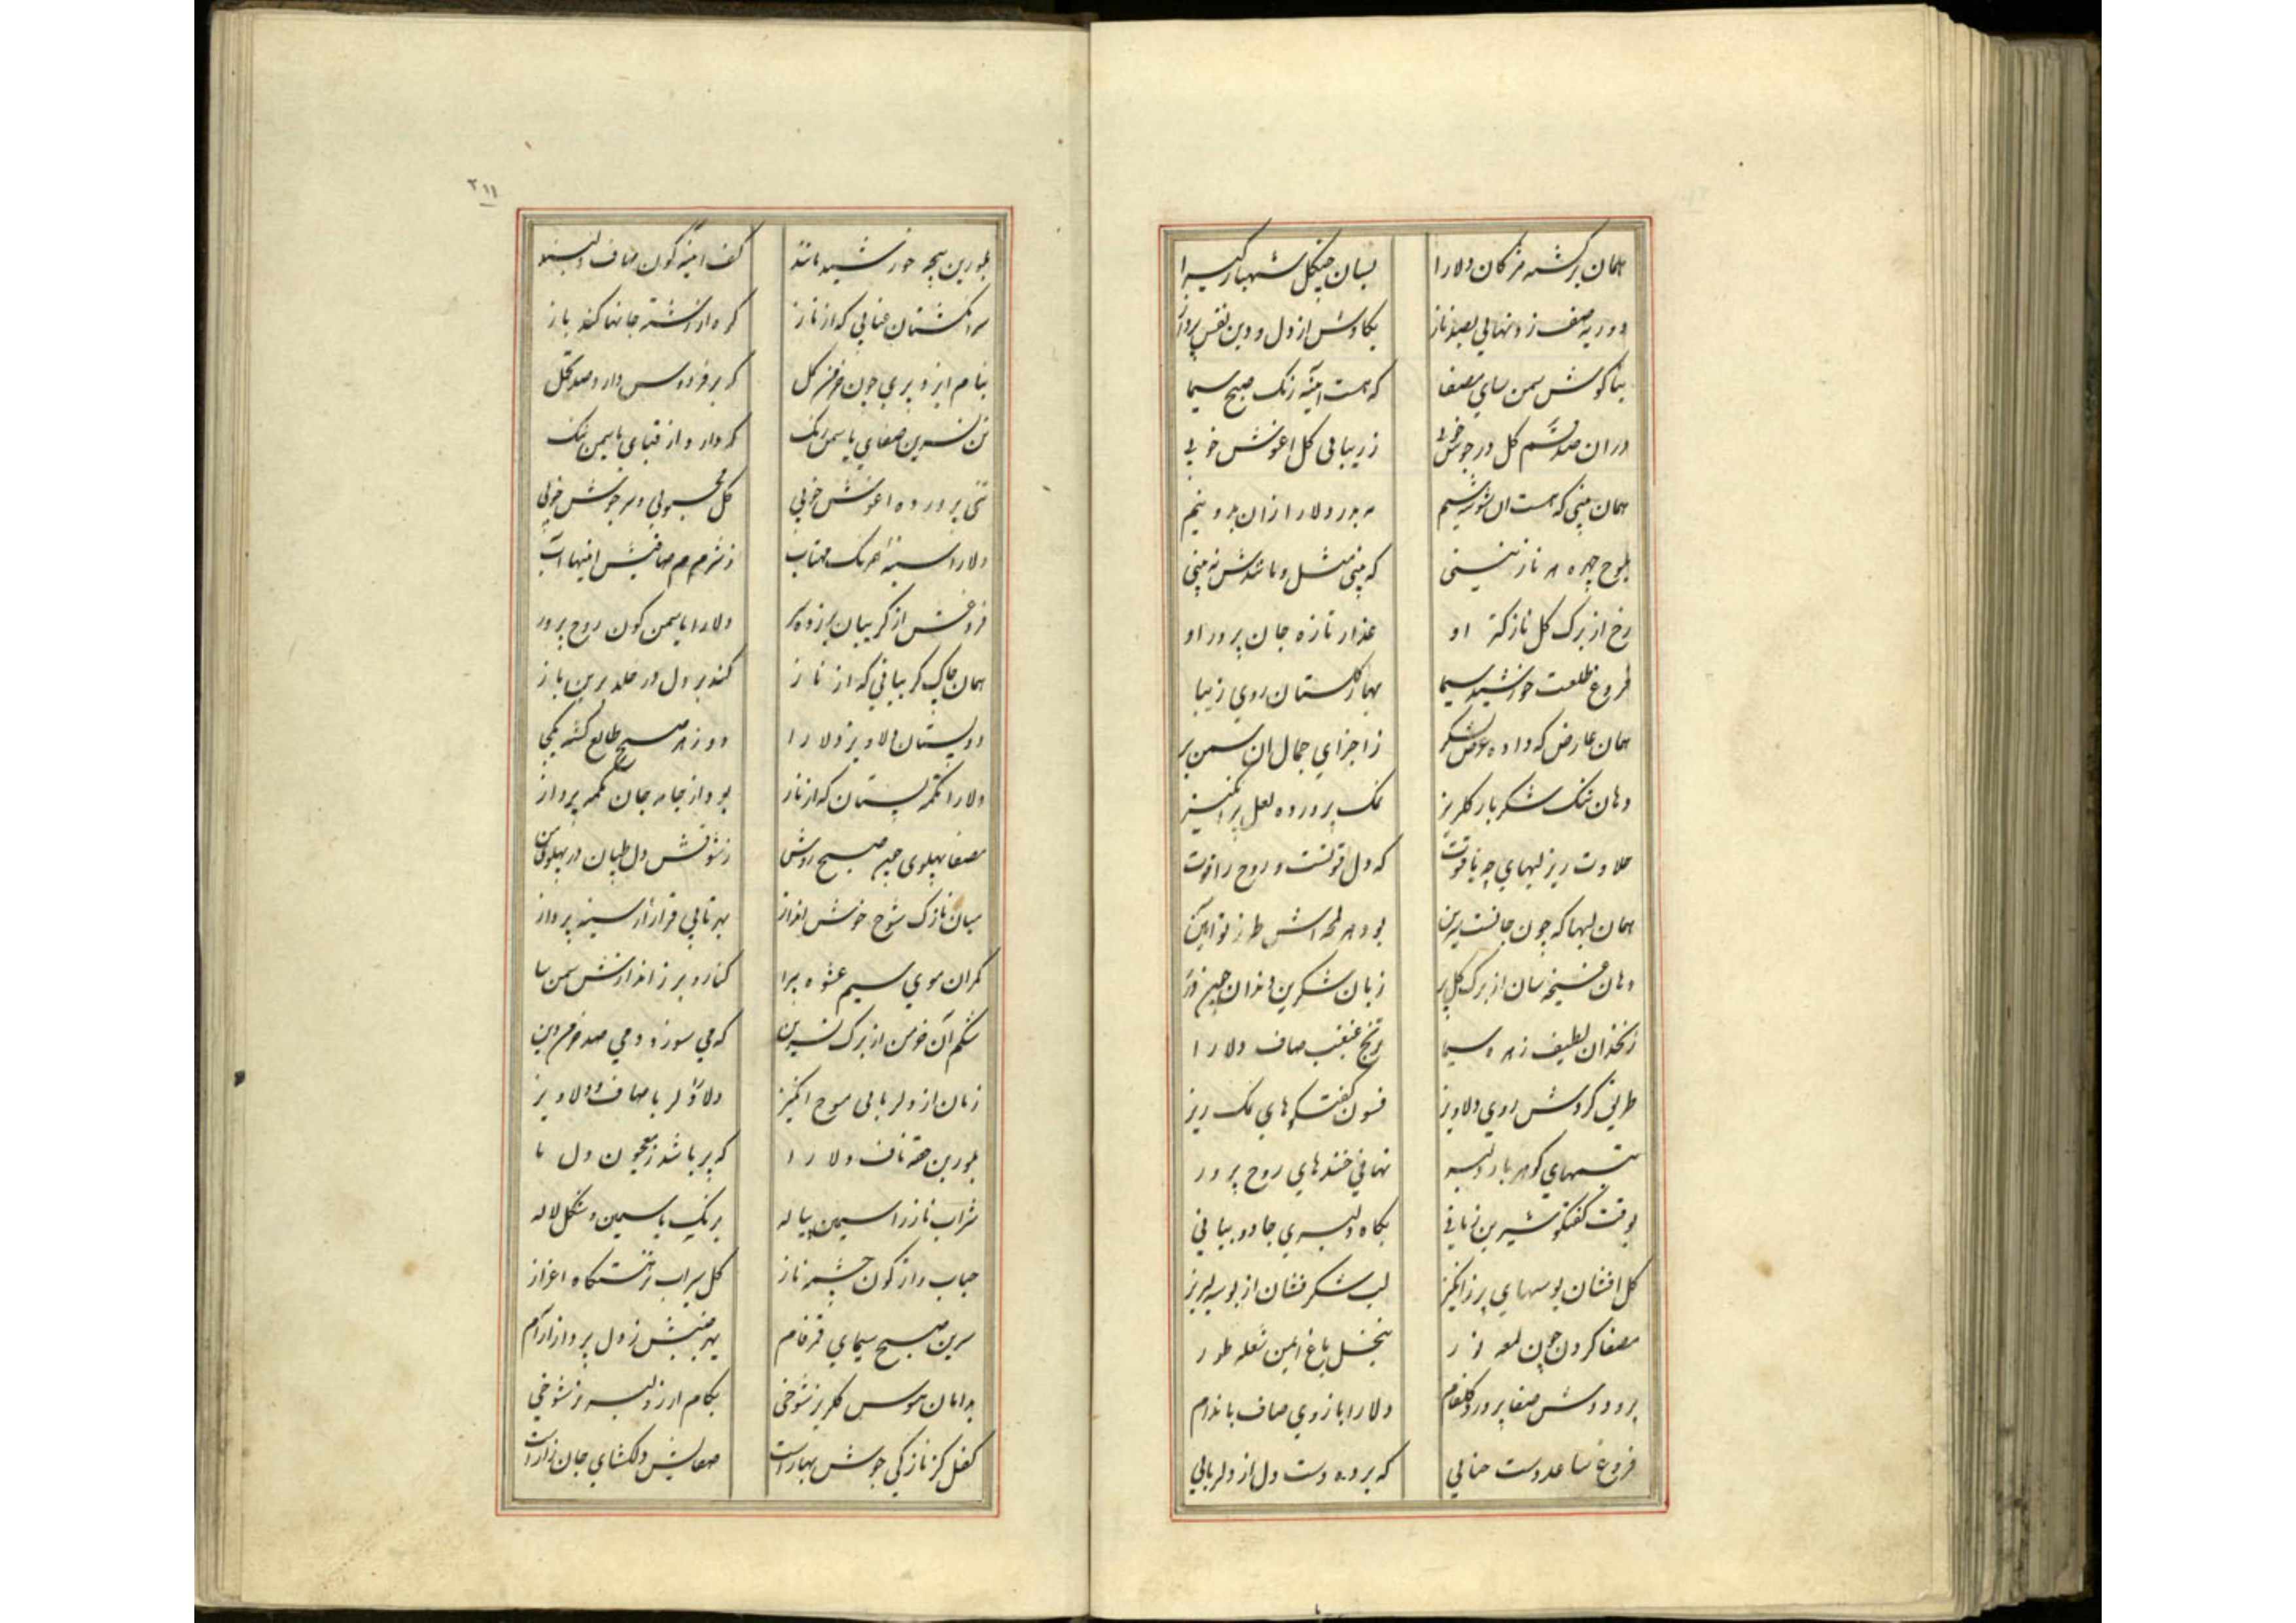 همان برکشته مژکان دلارا بسان چنکل شهباز کیرا
دو رویه صف زده نهایی بصد ناز بکاوش از دل و دین نقش پرداز
بناکوش سمن سای مصفا که هست آینه رنک صبح سیما
در ان صد چشم کل در جوش خوبی ز زیبایی کل اغوش خوبی
همان بینی که هست ان شوخ دلارا ازان بدو نیم
بلوح چهره هر نازنینی که بینی مثل و مانندش نه بینی
رخ از برک کل نازکتر او عذار تازه جان پرور او
فروغ طلعت خورشید سیما بهار کلستان روی زیبا
همان عارض که داده عرض لشکر ز اجزای جمال ان سمن بر
دهان تنک شکر بار کلریز نمک پرورده لعل پر انکیز
حلاوت ریز لبهای چو یاقوت که دل قوتست و روح را قوت
همان لبها که چون جانست شیرین بود هر لحظه اش طرز نو آیین
دهان غنچه سان از برک کل پر زبان شکرین در ان چین در
زنخدان لطیف زهره سیما ترنج غبغب صاف دلارا
طراز کردش روی دلاویز فسون کفتکوهای نمک ریز
تبسمهای کوهر بار دلبر نهانی خندهای روح پرور
بوقت کفتکو شیرین زبانی بکاه دلبری جادو بیانی
کل افشان بوسهای پر ز انکیز لب شکر فشان از بوسه لبریز
مصفا کردن چون لمعه نور بنخل باغ ایمن شعله طور
برو دوش صفا پرورد کلفام دلارا بازوی صاف باندام
فروغ ساعد دست حنایی که برده دست دل از دلربایی
۲۱۱
بلورین پنجه خورشید مانند کف آینه کون صاف دلبند
سر انکشتان عنابی که از ناز کره از رشته جانها کند باز
بنام ایزد بری چون خرمن کل که بر فردوس دارد صد تجمل
تن نسرین صفای یاسمن رنک که دارد از قبای یاسمن ننک
تنی پرورده اغوش خوبی کل محبوبی و سر جوش خوبی
دلارا سینه همرنک مهتاب ز شرم صافیش اینها آب
فروغش از کریبان بر زده سر دلارا یاسمن کون روح پرور
همان چاک کریبانی که از ناز کند بر دل در خلد برین باز
دو پستان دلاویز دلارا دو زهره صبح طالع کشته یکجا
دلارا تکمه پستان که از ناز بود از جامه جان تکمه پرداز
مصفا پهلوی چون صبح روشن ز شوقش دل طپان در پهلوی من
میان نازک شوخ خوش انداز بهر تابی قرار از سینه پرداز
کمر ان موی سیم عشوه پیرا کنار و بر ز اندازش سمن سا
شکم آن خرمن از برک نسرین که می سوزد دمی صد خرمن دین
زمان از دلربایی موج انکیز دلارا دلربا صاف و دلاویز
بلورین حقه ناف دلارا که پر باشد ز معجون دل ما
شراب ناز را سیمین پیاله برنک یاسمین و شکل لاله
حباب واژکون چشمه ناز کل سیراب نزهتکاه اعزاز
سرین صبح سیمای قمرفام بهر جنبش ز دل پرداز آرام
بدامان هوس کلریز شوخی بکام ارزو لبریز شوخی
کفل کز نازکی جوش بهارست صفایش دلکشای جان زارست